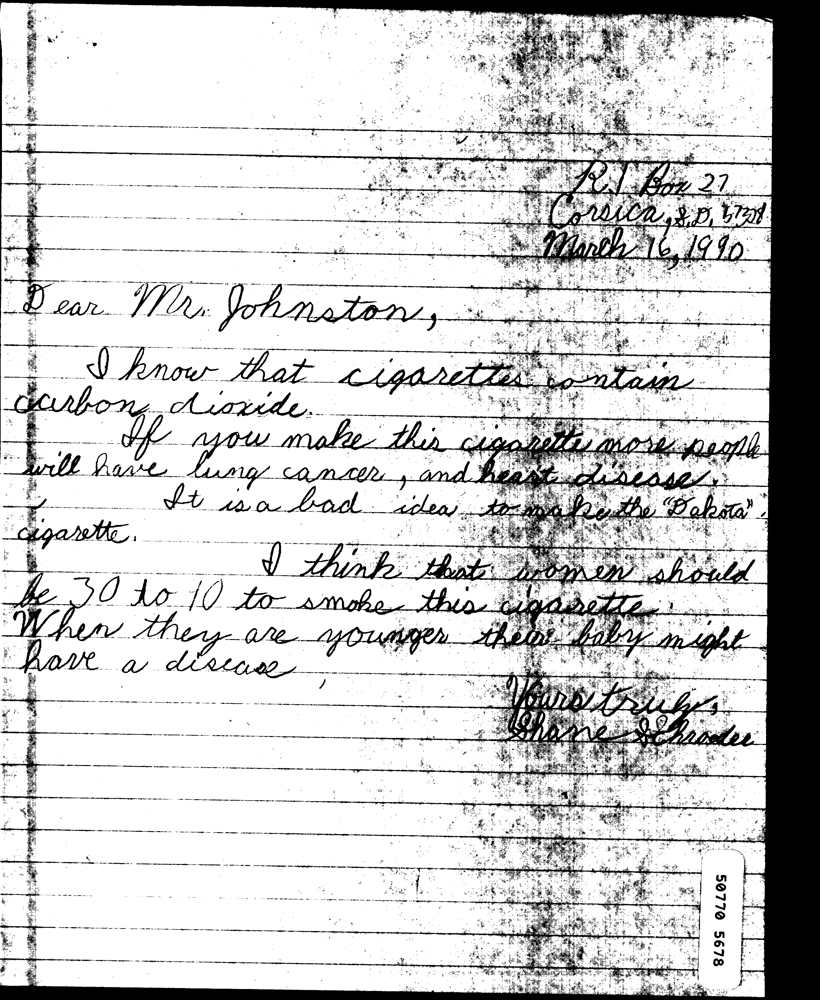 R.1 Box 27
Corsica, S.D. 57328
March 16, 1990
Dear Mr. Johnston,
I know that cigarettes contain
carbon dioxide.
If you make this cigarette more people
will have lung cancer, and heart disease.
It is a bad idea to make the "Dakota"
cigarette.
I think that women should
be 30 to 10 to smoke this cigarette.
When they are younger their baby might
have a disease
Yours truly,
Shane Schrader
50770 5678